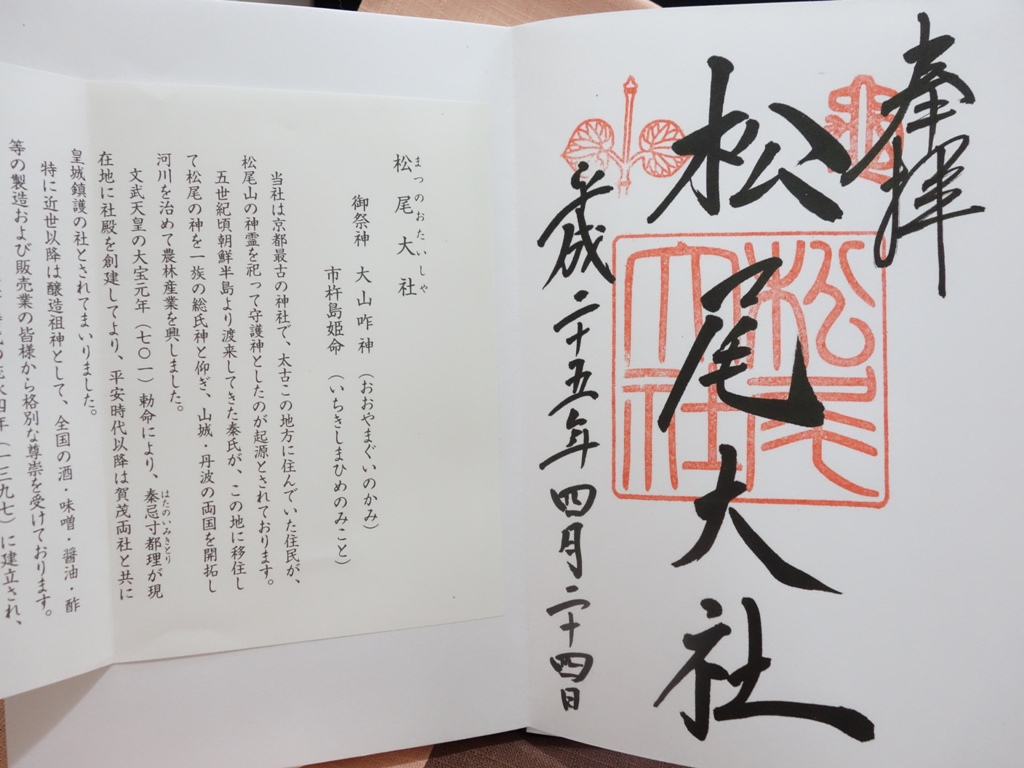 奉拝
松尾大社
松尾大社
平成二十五年四月二十四日
まつのおたいしゃ
松尾大社
御祭神 大山咋神 (おおやまぐいのかみ)
市杵島姫命 (いちきしまひめのみこと)
当社は京都最古の神社で、太古この地方に住んでいた住民が、
松尾山の神霊を祀って守護神としたのが起源とされております。
五世紀頃朝鮮半島より渡来してきた秦氏が、この地に移住し
て松尾の神を一族の総氏神と仰ぎ、山城・丹波の両国を開拓し
河川を治めて農林産業を興しました。
文武天皇の大宝元年(七〇一)勅命により、秦忌寸都理が現
はたのいみきとり
在地に社殿を創建してより、平安時代以降は賀茂両社と共に
皇城鎮護の社とされてまいりました。
特に近世以降は醸造祖神として、全国の酒・味噌・醤油・酢
等の製造および販売業の皆様から格別な尊崇を受けております。
四年(一三九七)に建立され、